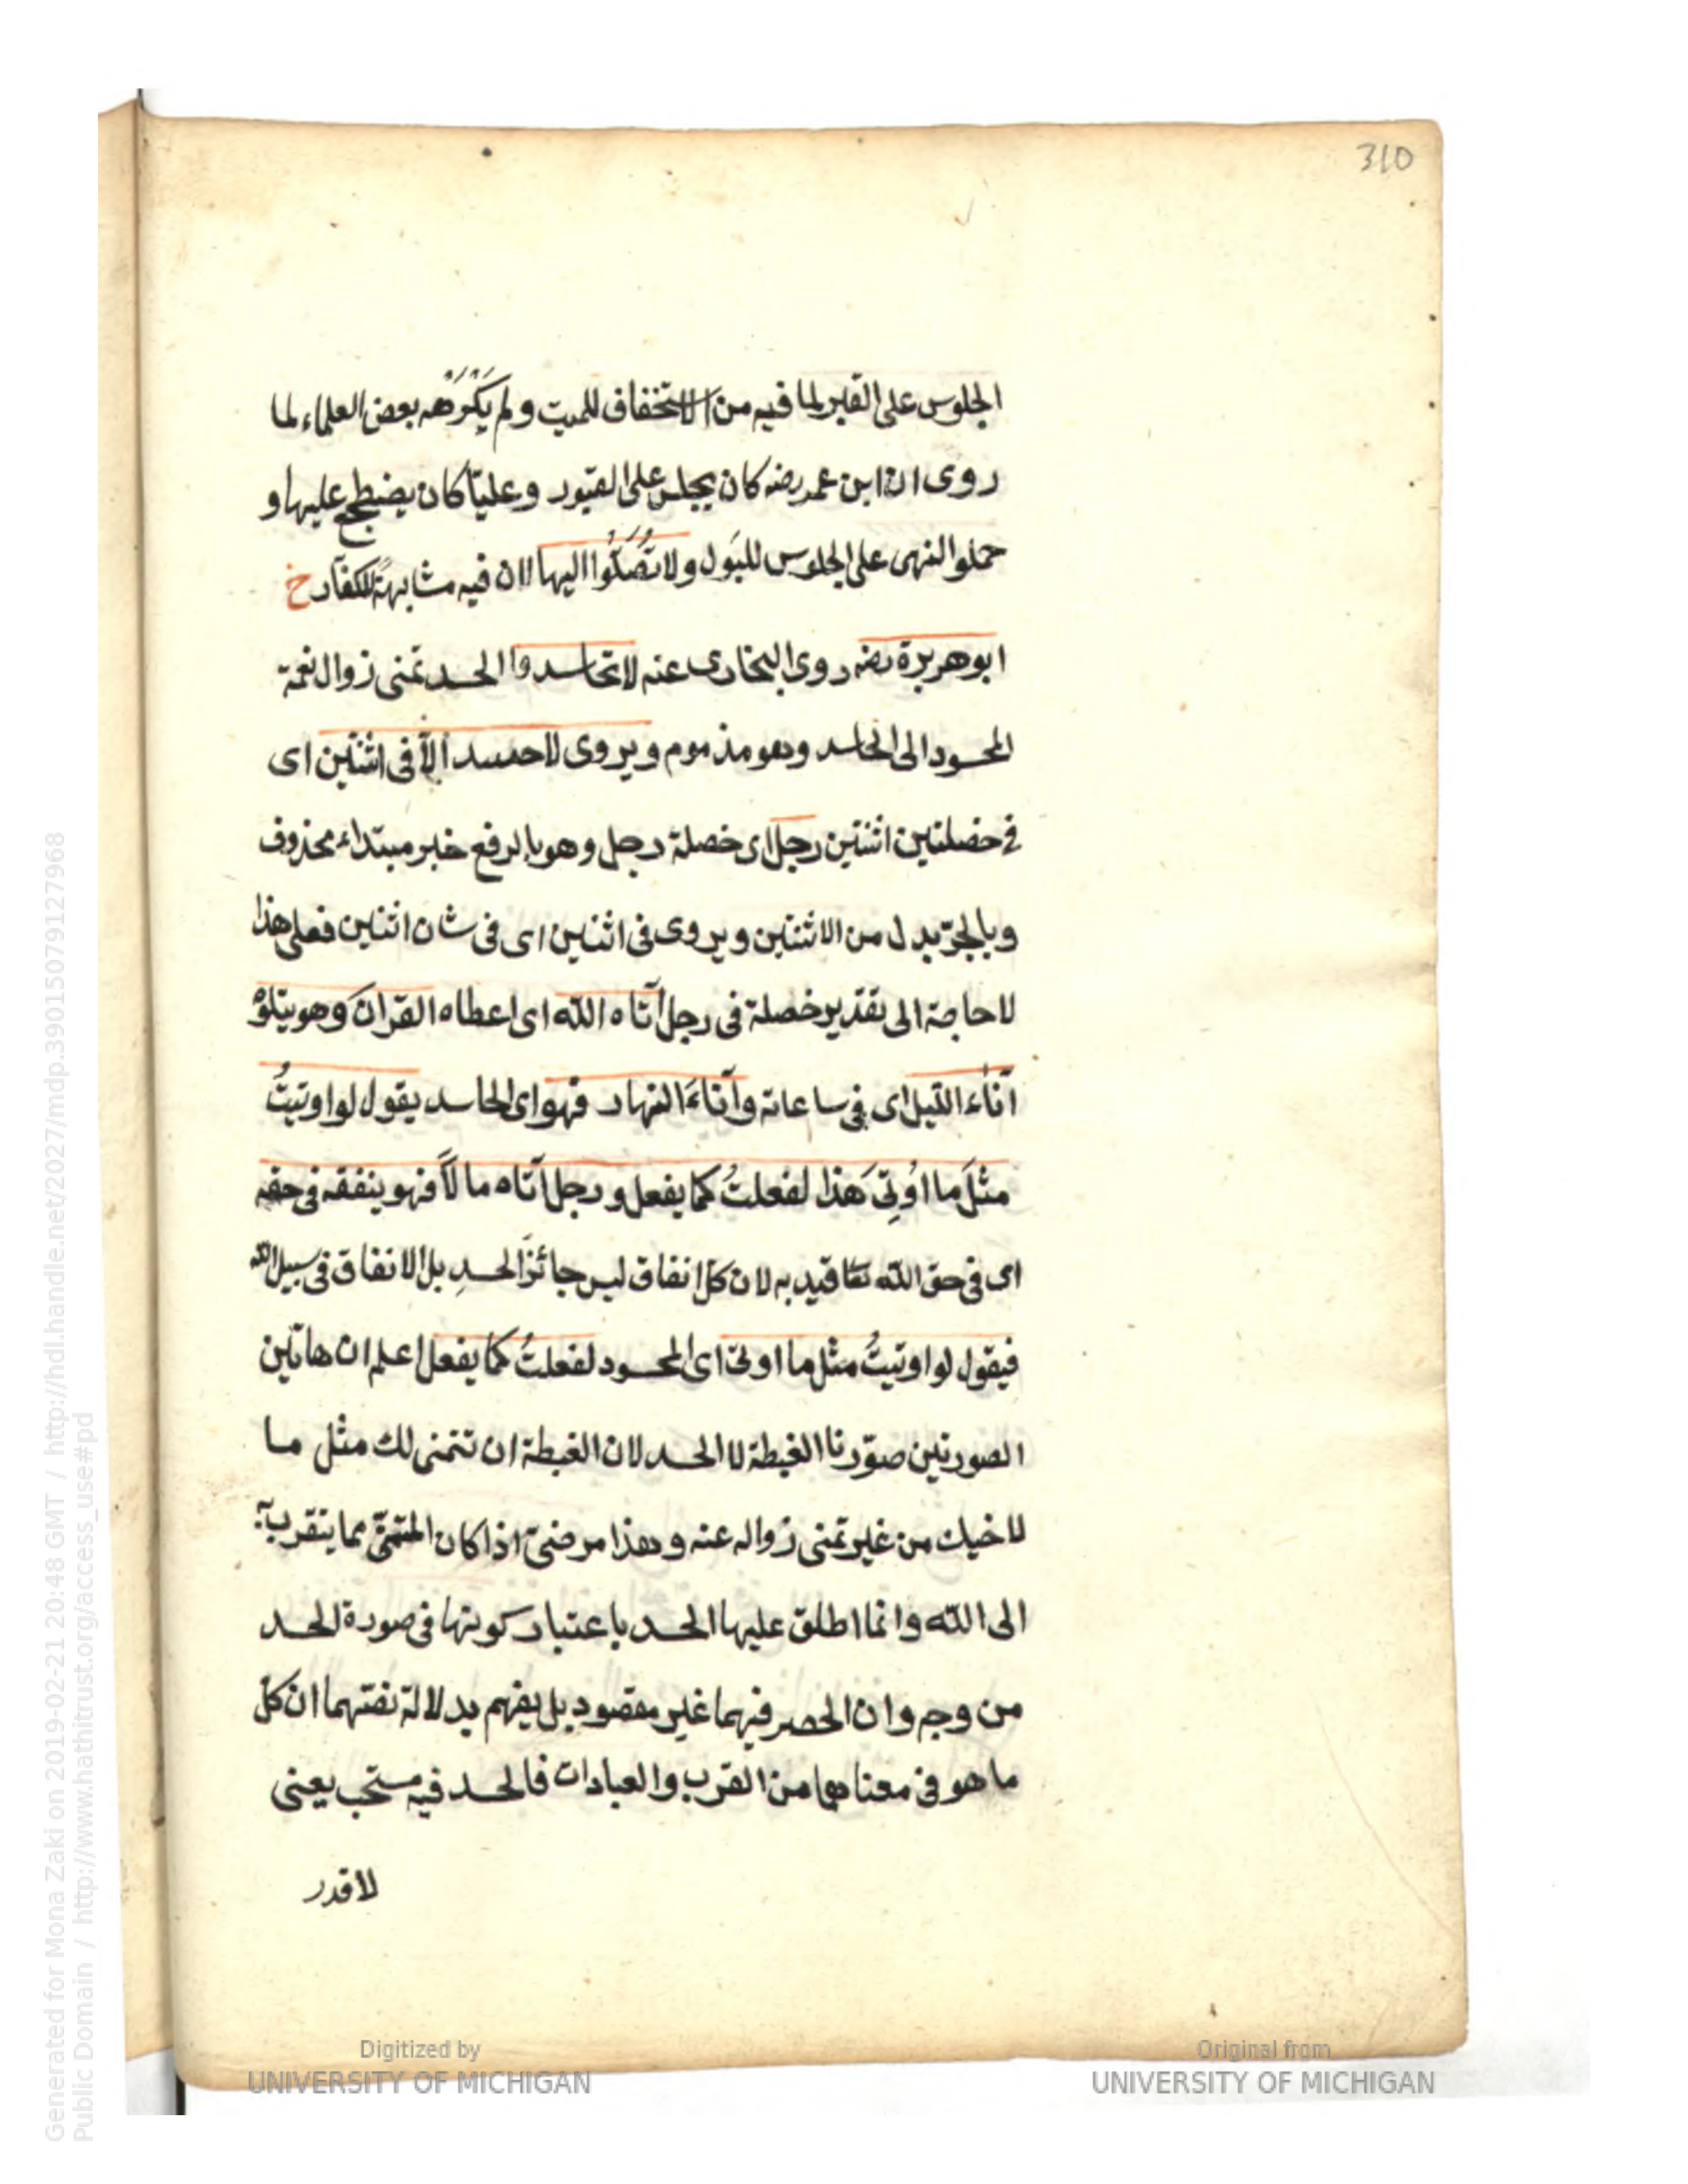 310
الجلوس على القبر لما فيه من الاستخفاف للميت و لم يَكْرَهْه بعض العلماء لما
روى ان ابن عمر رضه كان يجلس على القبور وعليّا كان يضطجع عليها و
حملوا النهى على الجلوس للبَول ولا تُصَلُّوا اليها لان فيه مشابهةً للكفّار خ
ابو هريرة رضه روى البخارى عنه لا تحاسدوا الحسد تمنى زوال نعمة
المحسود الى الحاسد وهو مذموم ويروى لا حسد الّا فى اثنتين اى
فى خصلتين اثنتين رجل اى خصلة رجل وهو بالرفع خبر مبتداء محذوف
وبالجرّ بدل من الاثنتين ويروى فى اثنين اى فى شان اثنين فعلى هذا
لا حاجة الى تقدير خصلة فى رجل آتاه الله اى اعطاه القرانَ وهو يتلوْه
آناءَ الليل اى فى ساعاته وآناءَ النهار فهو اى الحاسد يقول لو اوتيتُ
مثلَ ما اُوتِىَ هذا لفعلتُ كما يفعل و رجل آتاه مالاً فهو ينفقه فى حقه
اى فى حق الله تعا قيد به لان كلّ انفاق ليس جائزَ الحسدِ بل الانفاق فى سبيل الله
فيقول لو اوتيتُ مثل ما اوتى اى المحسود لفعلتُ كما يفعل اعلم ان هاتين
الصورتين صوّرتا الغبطة لا الحسد لان الغبطة ان تتمنى لك مثل ما
لاخيك من غير تمنى زواله عنه وهذا مرضىّ اذا كان المتمنّى مما يتقرب به
الى الله وانما اطلق عليها الحسد باعتبار كونها فى صورة الحسد
من وجه وان الحصر فيهما غير مقصود بل يفهم بدلالة نصّهما ان كل
ما هو فى معناهما من القرب والعبادات فالحسد فيه مستحب يعنى
لا قدر
Generated for Mona Zaki on 2019-02-21 20:48 GMT / http://hdl.handle.net/2027/mdp.39015079127968
Public Domain / http://www.hathitrust.org/access_use#pd
Digitized by
UNIVERSITY OF MICHIGAN
Original from
UNIVERSITY OF MICHIGAN